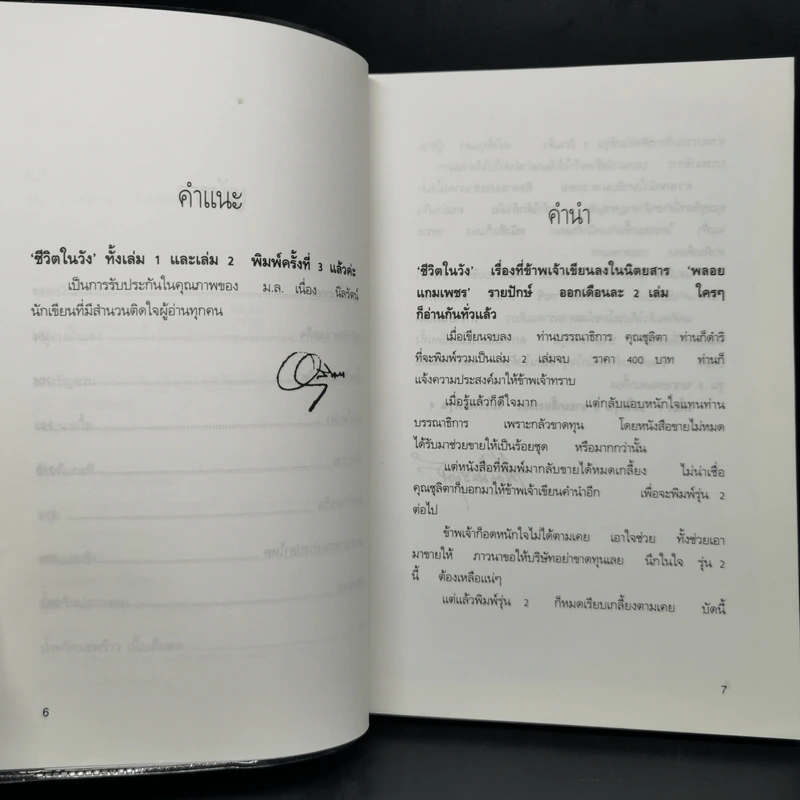 คำแนะ
‘ชีวิตในวัง’ ทั้งเล่ม 1 และเล่ม 2 พิมพ์ครั้งที่ 3 แล้วค่ะ
เป็นการรับประกันในคุณภาพของ ม.ล. เนื่อง นิลรัตน์
นักเขียนที่มีสำนวนติดใจผู้อ่านทุกคน
6
คำนำ
‘ชีวิตในวัง’ เรื่องที่ข้าพเจ้าเขียนลงในนิตยสาร ‘พลอย
แกมเพชร’ รายปักษ์ ออกเดือนละ 2 เล่ม ใครๆ
ก็อ่านกันทั่วแล้ว
เมื่อเขียนจบลง ท่านบรรณาธิการ คุณชุลิตา ท่านก็ดำริ
ที่จะพิมพ์รวมเป็นเล่ม 2 เล่มจบ ราคา 400 บาท ท่านก็
แจ้งความประสงค์มาให้ข้าพเจ้าทราบ
เมื่อรู้แล้วก็ดีใจมาก แต่กลับแอบหนักใจแทนท่าน
บรรณาธิการ เพราะกลัวขาดทุน โดยหนังสือขายไม่หมด
ได้รับมาช่วยขายให้เป็นร้อยชุด หรือมากกว่านั้น
แต่หนังสือที่พิมพ์มากลับขายได้หมดเกลี้ยง ไม่น่าเชื่อ
คุณชุลิตาก็บอกมาให้ข้าพเจ้าเขียนคำนำอีก เพื่อจะพิมพ์รุ่น 2
ต่อไป
ข้าพเจ้าก็อดหนักใจไม่ได้ตามเคย เอาใจช่วย ทั้งช่วยเอา
มาขายให้ ภาวนาขอให้บริษัทอย่าขาดทุนเลย นึกในใจ รุ่น 2
นี้ ต้องเหลือแน่ๆ
แต่แล้วพิมพ์รุ่น 2 ก็หมดเรียบเกลี้ยงตามเคย บัดนี้
7